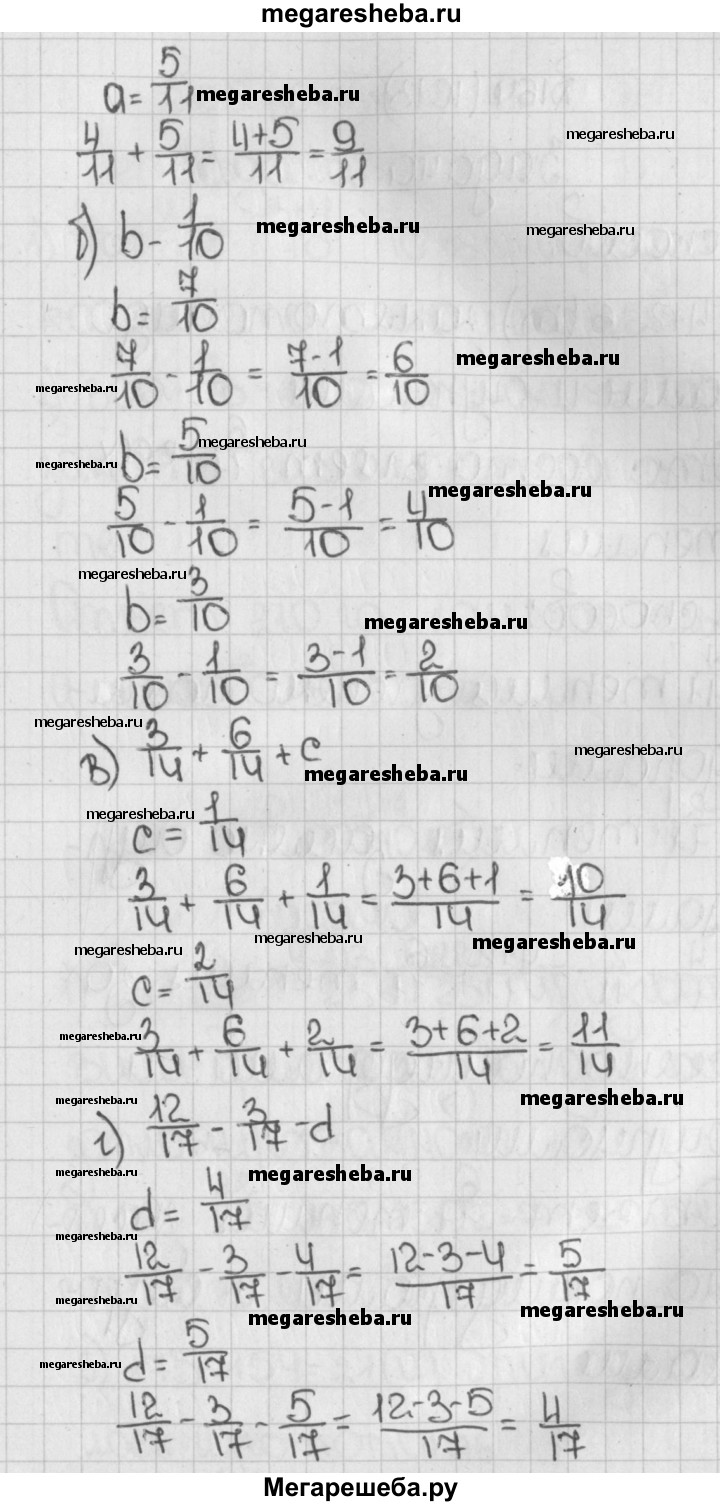 megaresheba.ru
a = 5/11 megaresheba.ru
4/11 + 5/11 = (4+5)/11 = 9/11 megaresheba.ru
б) b - 1/10 megaresheba.ru megaresheba.ru
b = 7/10
megaresheba.ru 7/10 - 1/10 = (7-1)/10 = 6/10 megaresheba.ru
megaresheba.ru b = 5/10 megaresheba.ru
5/10 - 1/10 = (5-1)/10 = 4/10 megaresheba.ru
megaresheba.ru
b = 3/10 megaresheba.ru
3/10 - 1/10 = (3-1)/10 = 2/10
megaresheba.ru
в) 3/14 + 6/14 + c megaresheba.ru megaresheba.ru
megaresheba.ru
c = 1/14
3/14 + 6/14 + 1/14 = (3+6+1)/14 = 10/14
megaresheba.ru megaresheba.ru
megaresheba.ru
c = 2/14
megaresheba.ru 3/14 + 6/14 + 2/14 = (3+6+2)/14 = 11/14
megaresheba.ru megaresheba.ru
г) 12/17 - 3/17 - d
megaresheba.ru megaresheba.ru
d = 4/17
megaresheba.ru
12/17 - 3/17 - 4/17 = (12-3-4)/17 = 5/17
megaresheba.ru megaresheba.ru megaresheba.ru
megaresheba.ru d = 5/17
12/17 - 3/17 - 5/17 = (12-3-5)/17 = 4/17
Мегарешеба.ру